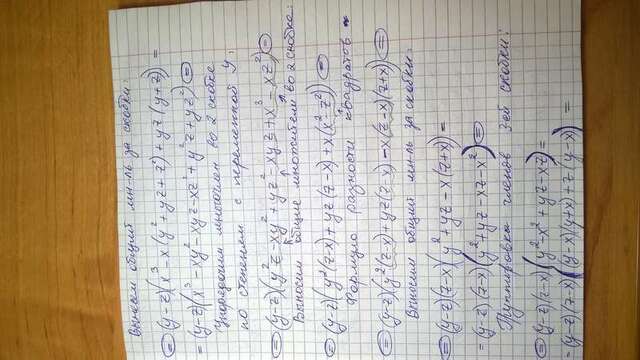 Выносим общий мн-ль за скобки:
= (y-z)(x³-x(y²+yz+z²)+yz(y+z)) =
= (y-z)(x³-xy²-xyz-xz²+y²z+yz²) =
Упорядочим многочлен во 2 скобке
по степеням с переменной y:
= (y-z)(y²z-xy²+yz²-xyz+x³-xz²) =
Выносим общие множители во 2 скобке:
= (y-z)(y²(z-x)+yz(z-x)+x(x²-z²)) =
Формула разности квадратов
= (y-z)(y²(z-x)+yz(z-x)-x(z-x)(z+x)) =
Выносим общий мн-ль за скобки:
= (y-z)(z-x)(y²+yz-x(z+x)) =
= (y-z)(z-x)(y²+yz-xz-x²) =
Группировка членов 3-ей скобки:
= (y-z)(z-x)(y²-x²+yz-xz) =
= (y-z)(z-x)((y-x)(y+x)+z(y-x)) =